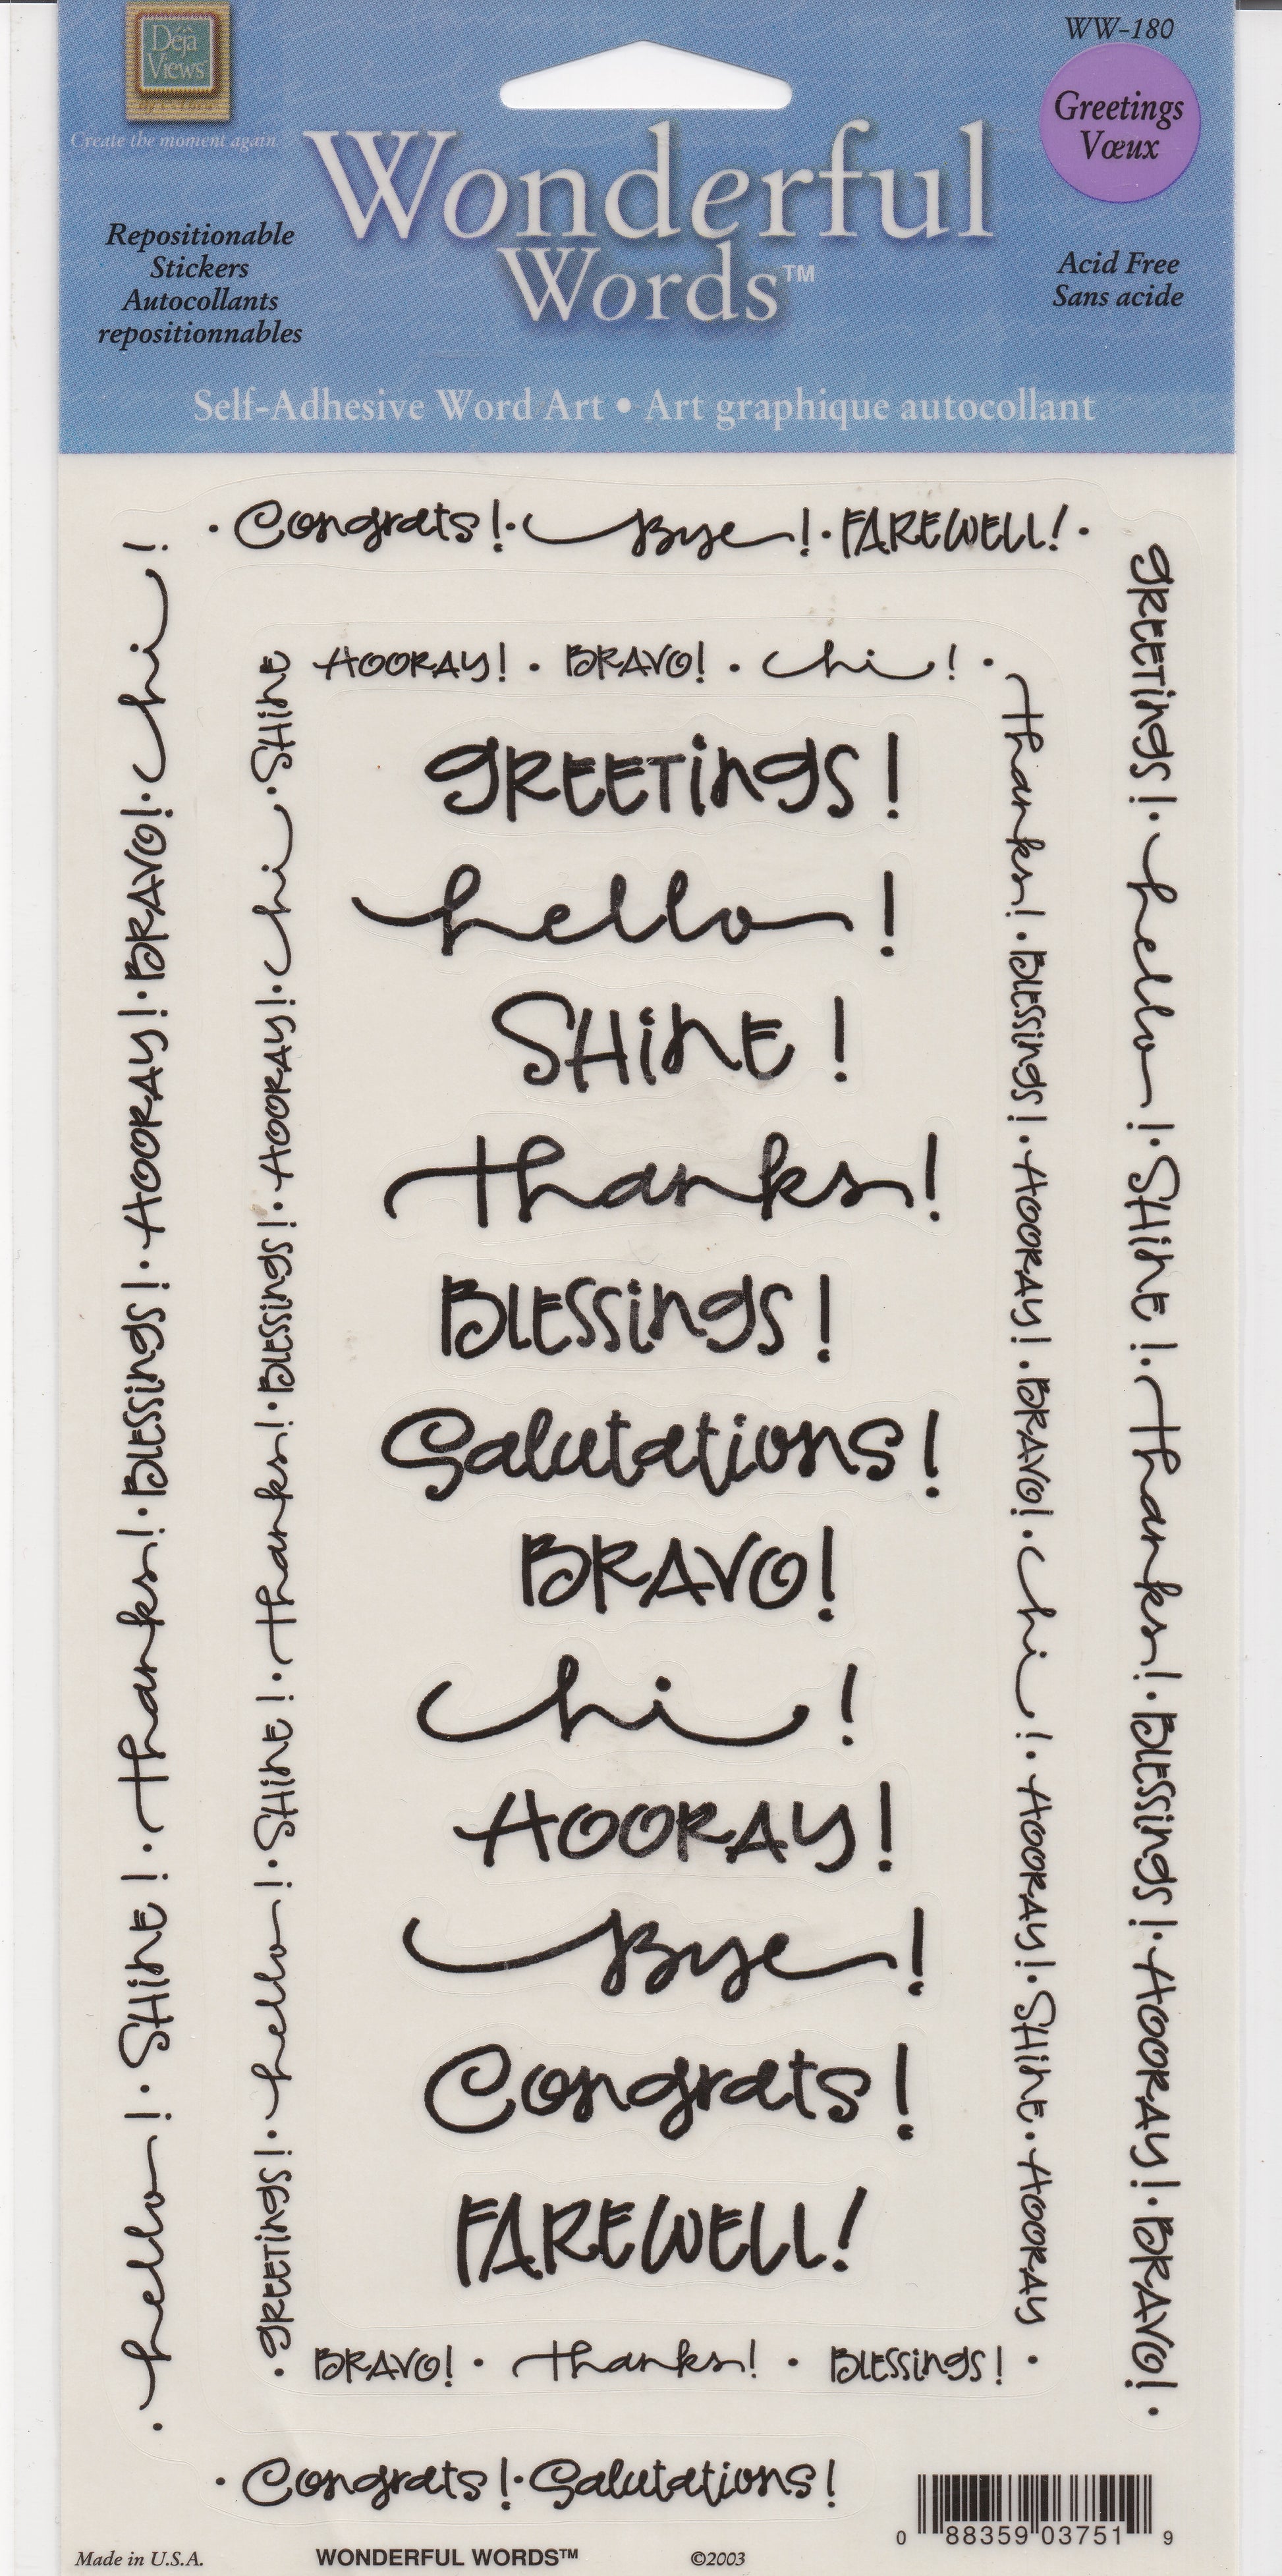 Déjà
Views
Create the moment again
WW-180
Greetings
Vœux
Wonderful
Words™
Repositionable
Stickers
Autocollants
repositionnables
Acid Free
Sans acide
Self-Adhesive Word Art • Art graphique autocollant
• Congrats! • Bye! • FAREWELL! •
• hello! • SHiNE! • thanks! • BLESSiNgs! • HOORAY! • BRAVO! • hi!
gREETiNgs! • hello! • SHiNE! • thanks! • BLESSiNgs! • HOORAY! • BRAVO! •
• gREETiNgs! • hello! • SHiNE! • thanks! • BLESSiNgs! • HOORAY! • hi • SHiNE
HOORAY! • BRAVO! • hi! •
thanks! • BLESSiNgs! • HOORAY! • BRAVO! • hi! • HOORAY! • SHiNE • HOORAY
gREETiNgs!
hello!
SHiNE!
thanks!
BLESSiNgs!
Salutations!
BRAVO!
hi!
HOORAY!
Bye!
Congrats!
FAREWELL!
BRAVO! • thanks! • BLESSiNgs! •
• Congrats! • Salutations!
0 88359 03751 9
Made in U.S.A.
WONDERFUL WORDS™
©2003